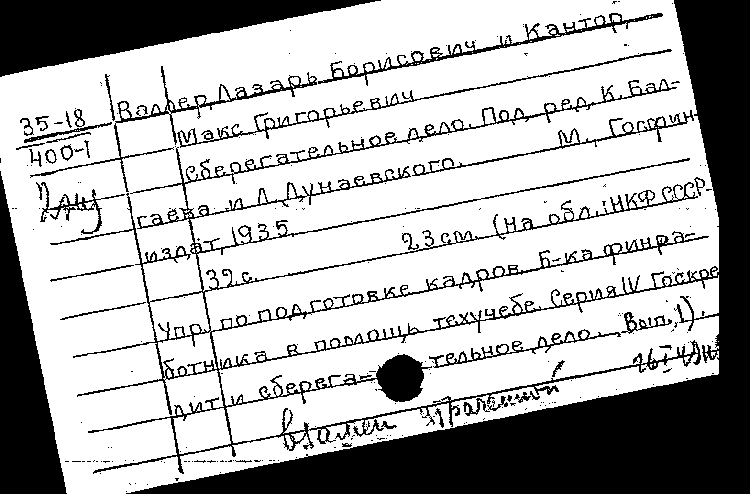 Валлер, Лазарь Борисович и Кантор,
35-18
400-I
Макс Григорьевич
Сберегательное дело. Под ред. К. Бал-
гаева и Л. Дунаевского. М., Госфин-
издат, 1935.
32 с. 23 см. (На обл.: НКФ СССР.
Упр. по подготовке кадров. Б-ка финра-
ботника в помощь техучебе. Серия IV Госкре
дит и сберега- тельное дело. Вып. 1).
взамен утраченной 26 I 48